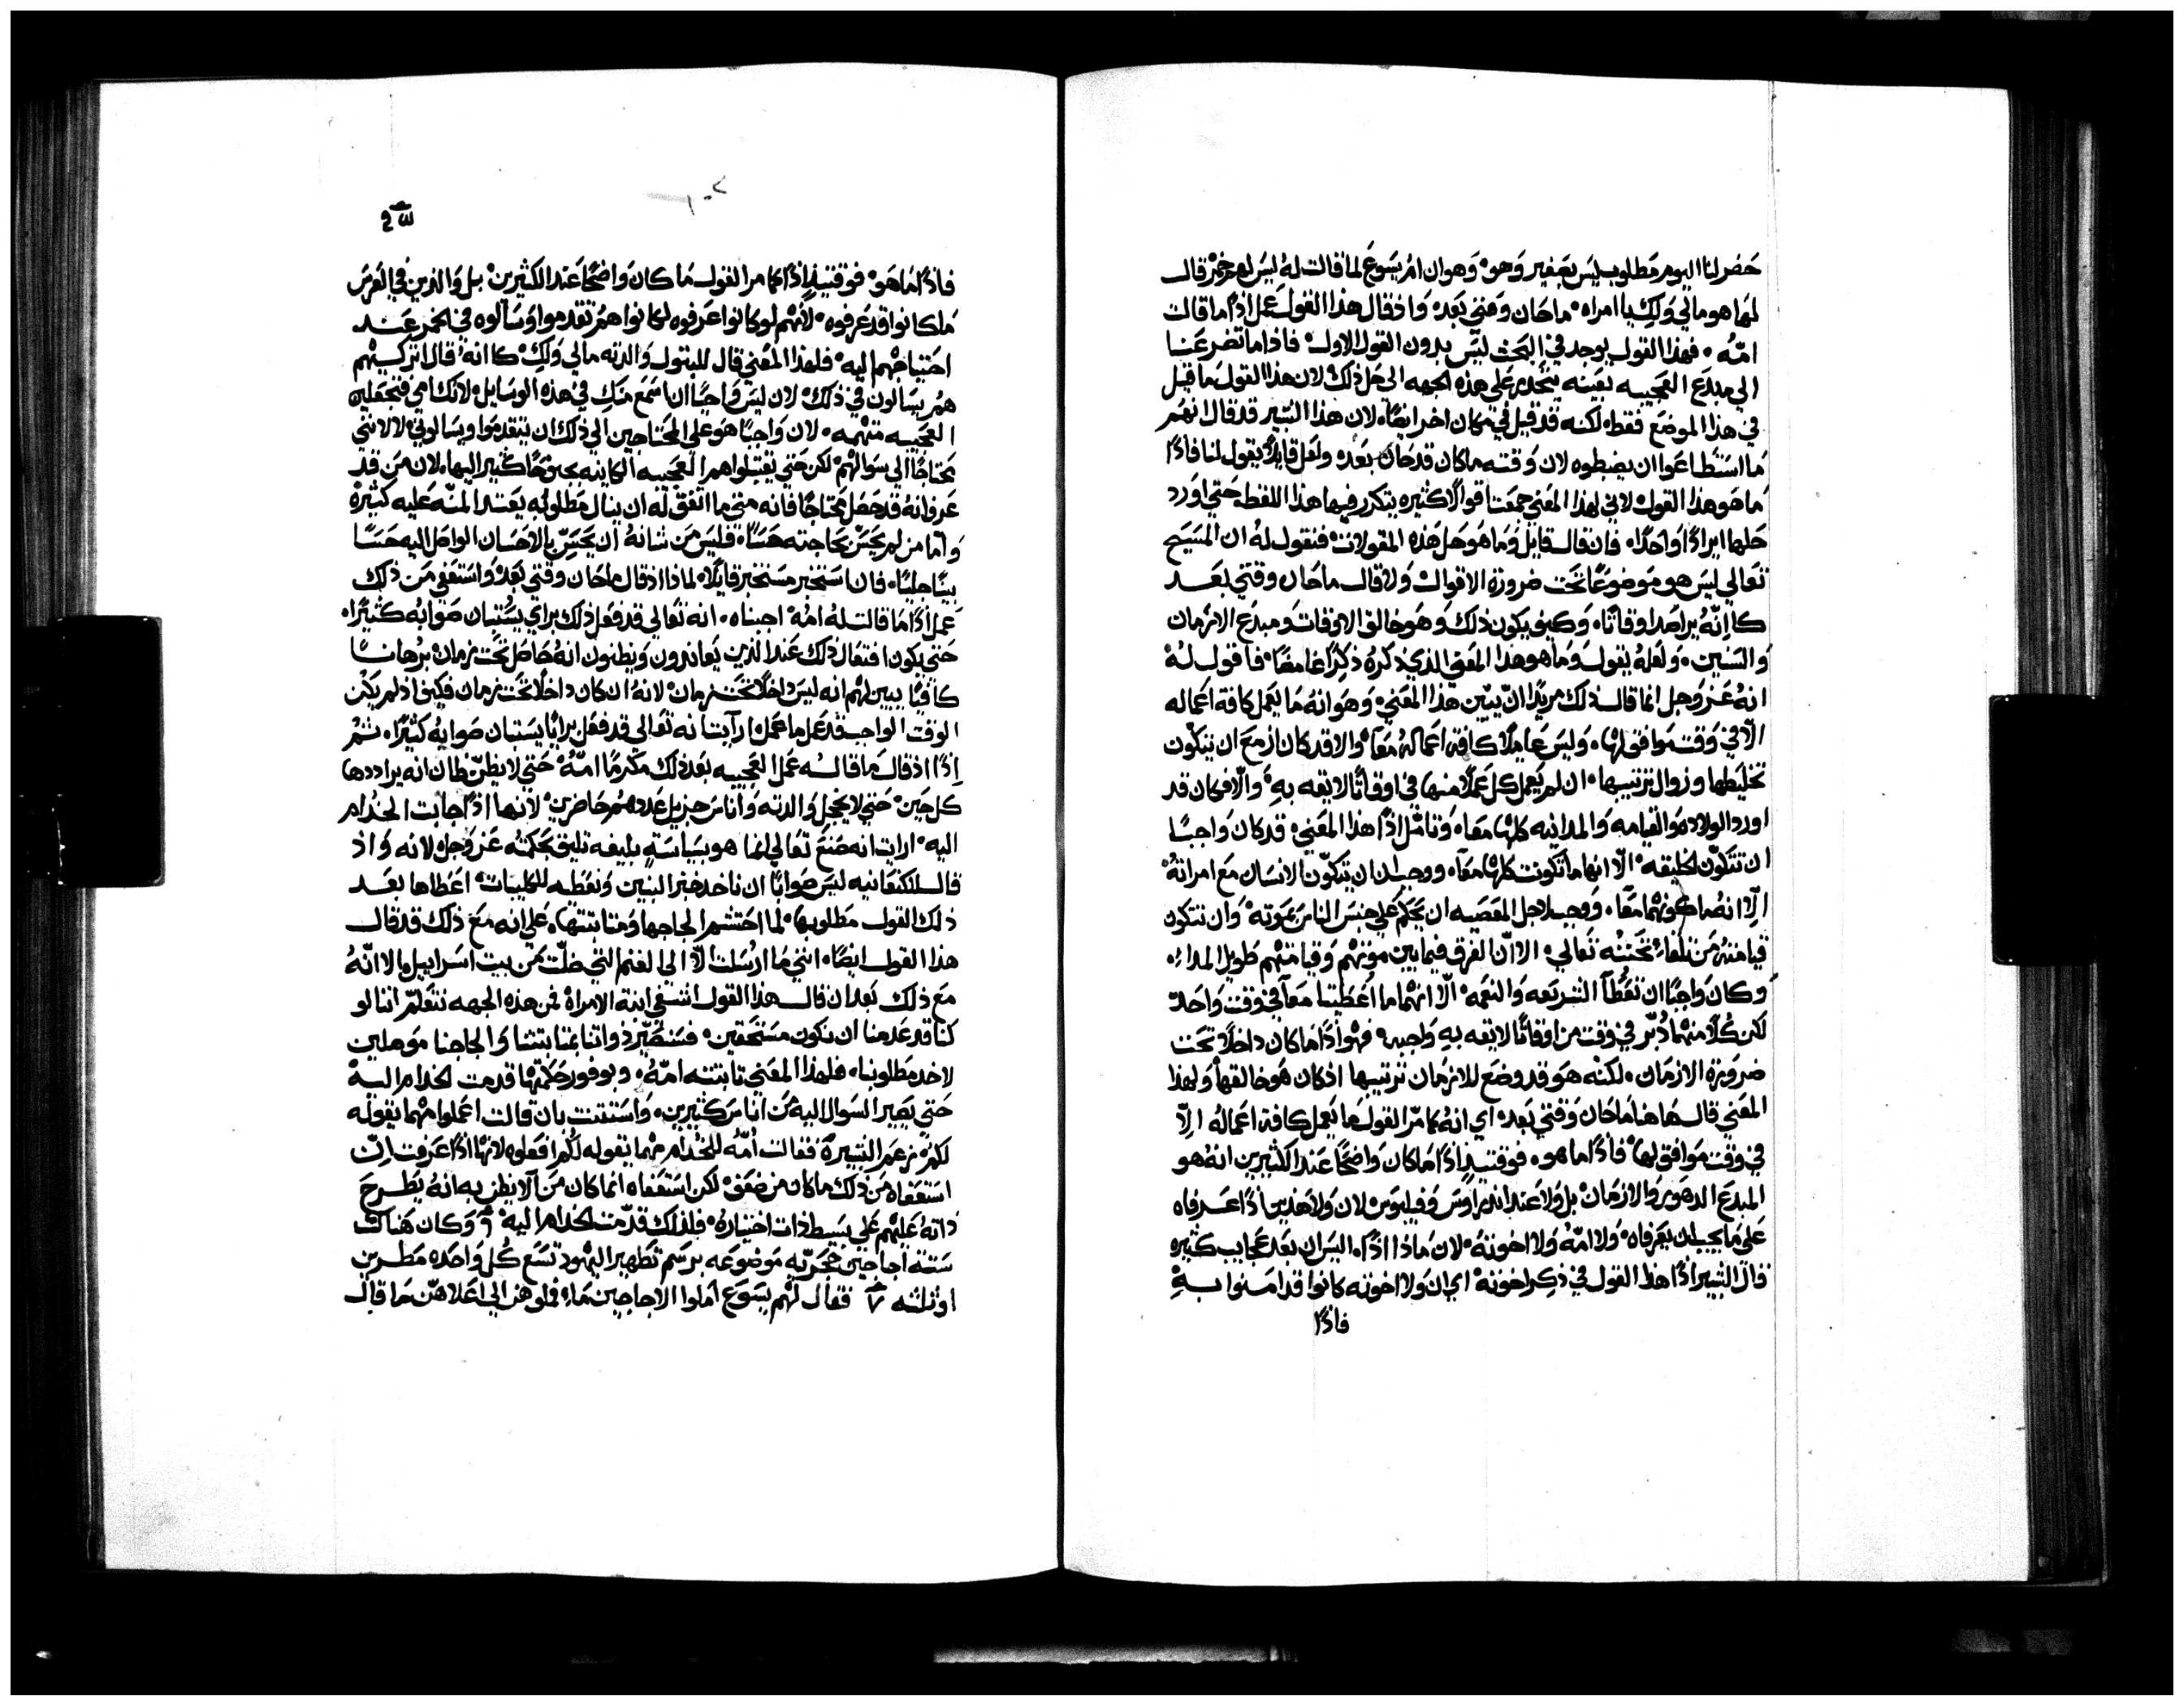 حضر لنا اليوم مطلوب ليس بصغير وهو وهو ان ام يسوع لما قالت له ليس لهم خمر قال
لها هو مالي ولك يا امراه ما حان وقتي بعد واذ قال هذا القول عمل اذا ما قالت
امه فهذا القول يوجد في البحث ليس بدون القول الاول فاذا ما تضرعنا
الي مبدع العجيبه بعينه ننحدر علي هذه الجهه الي حل ذلك لان هذا القول ما قيل
في هذا الموضع فقط لكنه قد قيل في مكان اخر ايضا لان هذا البشير قد قال انهم
ما استطاعوا ان يضبطوه لان وقته ما كان قد حان بعد ولعل قايلا يقول لنا فاذا
ما هو هذا القول لاني لهذا المعني جمعت اقوالا كثيره يتكرر فيها هذا اللفظ حتي اورد
حلها ايرادا واحدا فان قال قايل وما هو حل هذه المقولات فنقول له ان المسيح
تعالي ليس هو موضوعا تحت ضرورة الاقوات ولا قال ما حان وقتي بعد
كانه يراصد اوقاتا وكيف يكون ذلك وهو خالق الاوقات ومبدع الازمان
والسنين ولعله يقول وما هو هذا المعني الذي ذكره ذكرا غامضا فاقول له
انه عز وجل انما قال ذلك مريدا ان يبين هذا المعني وهو انه ما يعمل كافة اعماله
الا في وقت موافق لها وليس عاملا كافة اعماله معا والا قد كان ازمع ان يتكون
تخليطها وزوال ترتيبها ان لم يعمل كل عملا منها في اوقاتا لايقه به والا فكان قد
اورد الولاده والقيامه والمداينه كلها معا وتامل اذا هذا المعني قد كان واجبا
ان تتكون الخليقه الا انها ما تكونت كلها معا ووجب ان يتكون الانسان مع امراته
الا انه ما كونهما معا ووجب لاجل المعصيه ان يحكم علي جنس الناس بموته وان تتكون
قيامته من تلقاء تحننه تعالي الا ان الفرق فيما بين موتهم وقيامتهم طويل المدا
وكان واجبا ان تعطا الشريعه والنعمه الا انهما ما اعطيتا معا في وقت واحد
لكن كلا منهما دبر في وقت من اوقاتا لايقه به واجبه فهو اذا ما كان داخلا تحت
ضرورة الازمان لكنه هو قد وضع للازمان ترتيبها اذ كان هو خالقها ولهذا
المعني قال هاهنا ما حان وقتي بعد اي انه كما مر القول ما يعمل كافة اعماله الا
في وقت موافق لها فاذا ما هو فوقتيذ اذا ما كان واضحا عند الكثيرين انه هو
المبدع الدهور والازمان بل ولا عند اندراوس وفيلبوس لان ولا هذين اذا عرفاه
علي ما يجب ان يعرفاه ولا امه ولا اخوته لان ماذا اذا اليس ان بعد عجايب كثيره
قال البشير اذا هذا القول في ذكر اخوته اي ان ولا اخوته كانوا قد امنوا به
فاذا
فاذا ما هو فوقتيذ اذا كما مر القول ما كان واضحا عند الكثيرين بل والذين في العرس
ما كانوا قد عرفوه لانهم لو كانوا عرفوه لكانوا هم تقدموا وسالوه في الخمر عند
احتياجهم اليه فلهذا المعني قال للبتول والدته مالي ولك كانه قال اتركيهم
هم يسالون في ذلك لان ليس واجبا ان اسمع منك في هذه الوسايل لانك امي فتجعلين
العجيبه متهمه لان واجبا هو علي المحتاجين الي ذلك ان يتقدموا ويسالوني لا لانني
محتاجا الي سوالهم لكن حتي يقتبلوا هم العجيبه الكاينه كثيرا اليها لان من قد
عرف انه قد حصل محتاجا فانه متي ما اتفق له ان ينال مطلوبه يعتد المنه عليه كثيره
واما من لم يحس بحاجته حسا فليس من شانه ان يحس بالاحسان الواصل اليه حسا
بينا جليا فان استخبر مستخبر قايلا لماذا اذ قال ما حان وقتي بعد واستعفي من ذلك
عمل اذا ما قالت له امه اجبناه انه تعالي قد فعل ذلك براي يستبان صوابه كثيرا
حتي يكون افتعال ذلك عند الذين يعاندون ويظنون انه حاصل تحت زمان برهانا
كافيا يبين لهم انه ليس داخلا تحت زمان لانه ان كان داخلا تحت زمان فكيف اذ لم يكن
الوقت الواجب قد عمل ما عمل ارايت انه تعالي قد فعل برايا يستبان صوابه كثيرا ثم
اذا اذ قال ما قاله عمل العجيبه بعد ذلك مكرما امه حتي لا يظن ظان انه يراددها
كل حين حتي لا يخجل والدته واناس جزيل عددهم حاضرين لانها اذا جابت الخدام
اليه ارايت انه صنع تعالي انما هو بسياسة بليغه تليق بحكمته عز وجل لانه واذ
قال للكنعانيه ليس صوابا ان ناخذ خبز البنين ونعطيه للكليبات اعطاها بعد
ذلك القول مطلوبها لما احتشم الجاجها ومتابتتها علي انه مع ذلك قد قال
هذا القول ايضا انني ما ارسلت الا الي الغنم التي ضلت من بيت اسراييل الا انه
مع ذلك بعد ان قال هذا القول اشفي ابنة الامراه فمن هذه الجهه نتعلم اننا لو
كنا قد عدمنا ان نكون مستحقين فسنصير ذواتنا بمتابتتنا والجاجنا موهلين
لاخذ مطلوبنا فلهذا المعني تابتته امه وبوفور حكمتها قدمت الخدام اليه
حتي يصير السوال اليه من اناس كثيرين واستثنت بان قالت اعملوا مهما يقوله
لكم زعم البشير فقالت امه للخدام مهما يقوله لكم افعلوه لانها اذا عرفت ان
استعفاه من ذلك ما كان من ضعف لكن استعفاه انما كان من الا يظن به انه يطرح
ذاته عليهم علي بسيط ذات اختياره فلذلك قدمت الخدام اليه وكان هناك
ستة اجاجين حجريه موضوعه برسم تطهير اليهود تسع كل واحده مطرين
او ثلثه فقال لهم يسوع املوا الاجاجين ماء فملوهن الي اعلاهن ما قال